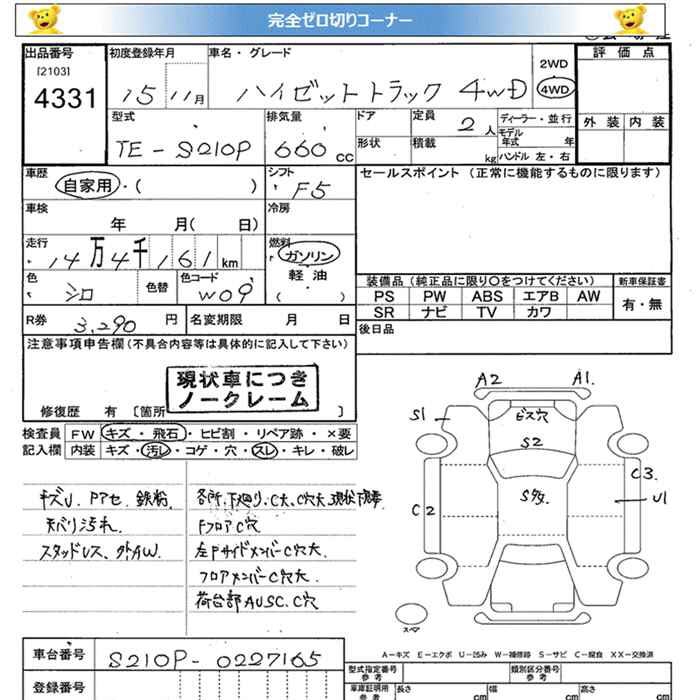 完全ゼロ切りコーナー
出品番号 初度登録年月 車名・グレード 評価点
[2103]
4331 15 11月 ハイゼットトラック 4WD 2WD 4WD
型式 排気量 ドア 定員 2人 ディーラー・並行 外装 内装
モデル年式 年
TE-S210P 660cc 形状 積載 kg ハンドル 左・右
車歴 シフト セールスポイント (正常に機能するものに限ります)
自家用・( ) F5
車検 冷房
年 月( 日)
走行 燃料
14万4千161km ガソリン
色 色替 色コード 軽油
シロ W09 ( )
装備品(純正品に限り〇をつけてください) 新車保証書
PS PW ABS エアB AW 有・無
SR ナビ TV カワ
R券 3,290円 名変期限 月 日 後日品
注意事項申告欄(不具合内容等は具体的に記入して下さい)
現状車につき
ノークレーム
修復歴 有 [箇所 ]
検査員 FW キズ・飛石・ヒビ割・リペア跡・×要
記入欄 内装 キズ・汚レ・コゲ・穴・スレ・キレ・破レ
キズU. Pアセ. 鉄粉
天バリ汚れ.
スタッドレス、外AW.
各所、下廻り、C大、C穴大、現状下廻車
FフロアC穴
左FサイドメンバーC穴大
フロアメンバーC穴大.
荷台部AUSC.C穴
A2 A1.
S1 ビス穴
S2
S多
C2 C3. U1
スペア
A-キズ E-エクボ U-凹み W-補修跡 S-サビ C-腐食 XX-交換済
車台番号 S210P-0227165
登録番号
型式指定番号 参考 類別区分番号 参考
車庫証明用 参考 長さ cm 幅 cm 高さ cm